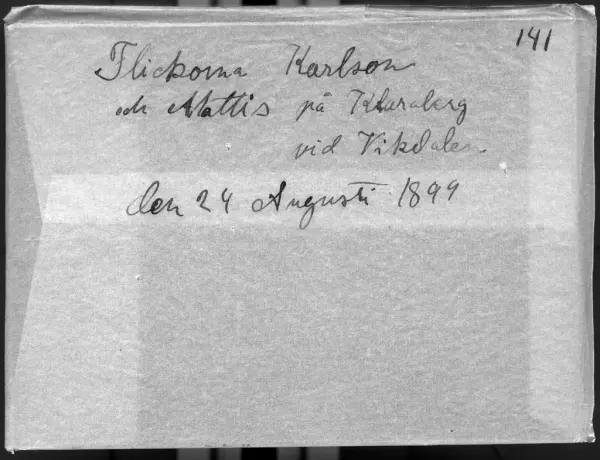 141
Flickorna Karlson
och Mattis på Klaraberg
vid Vikdalen
den 24 Augusti 1899